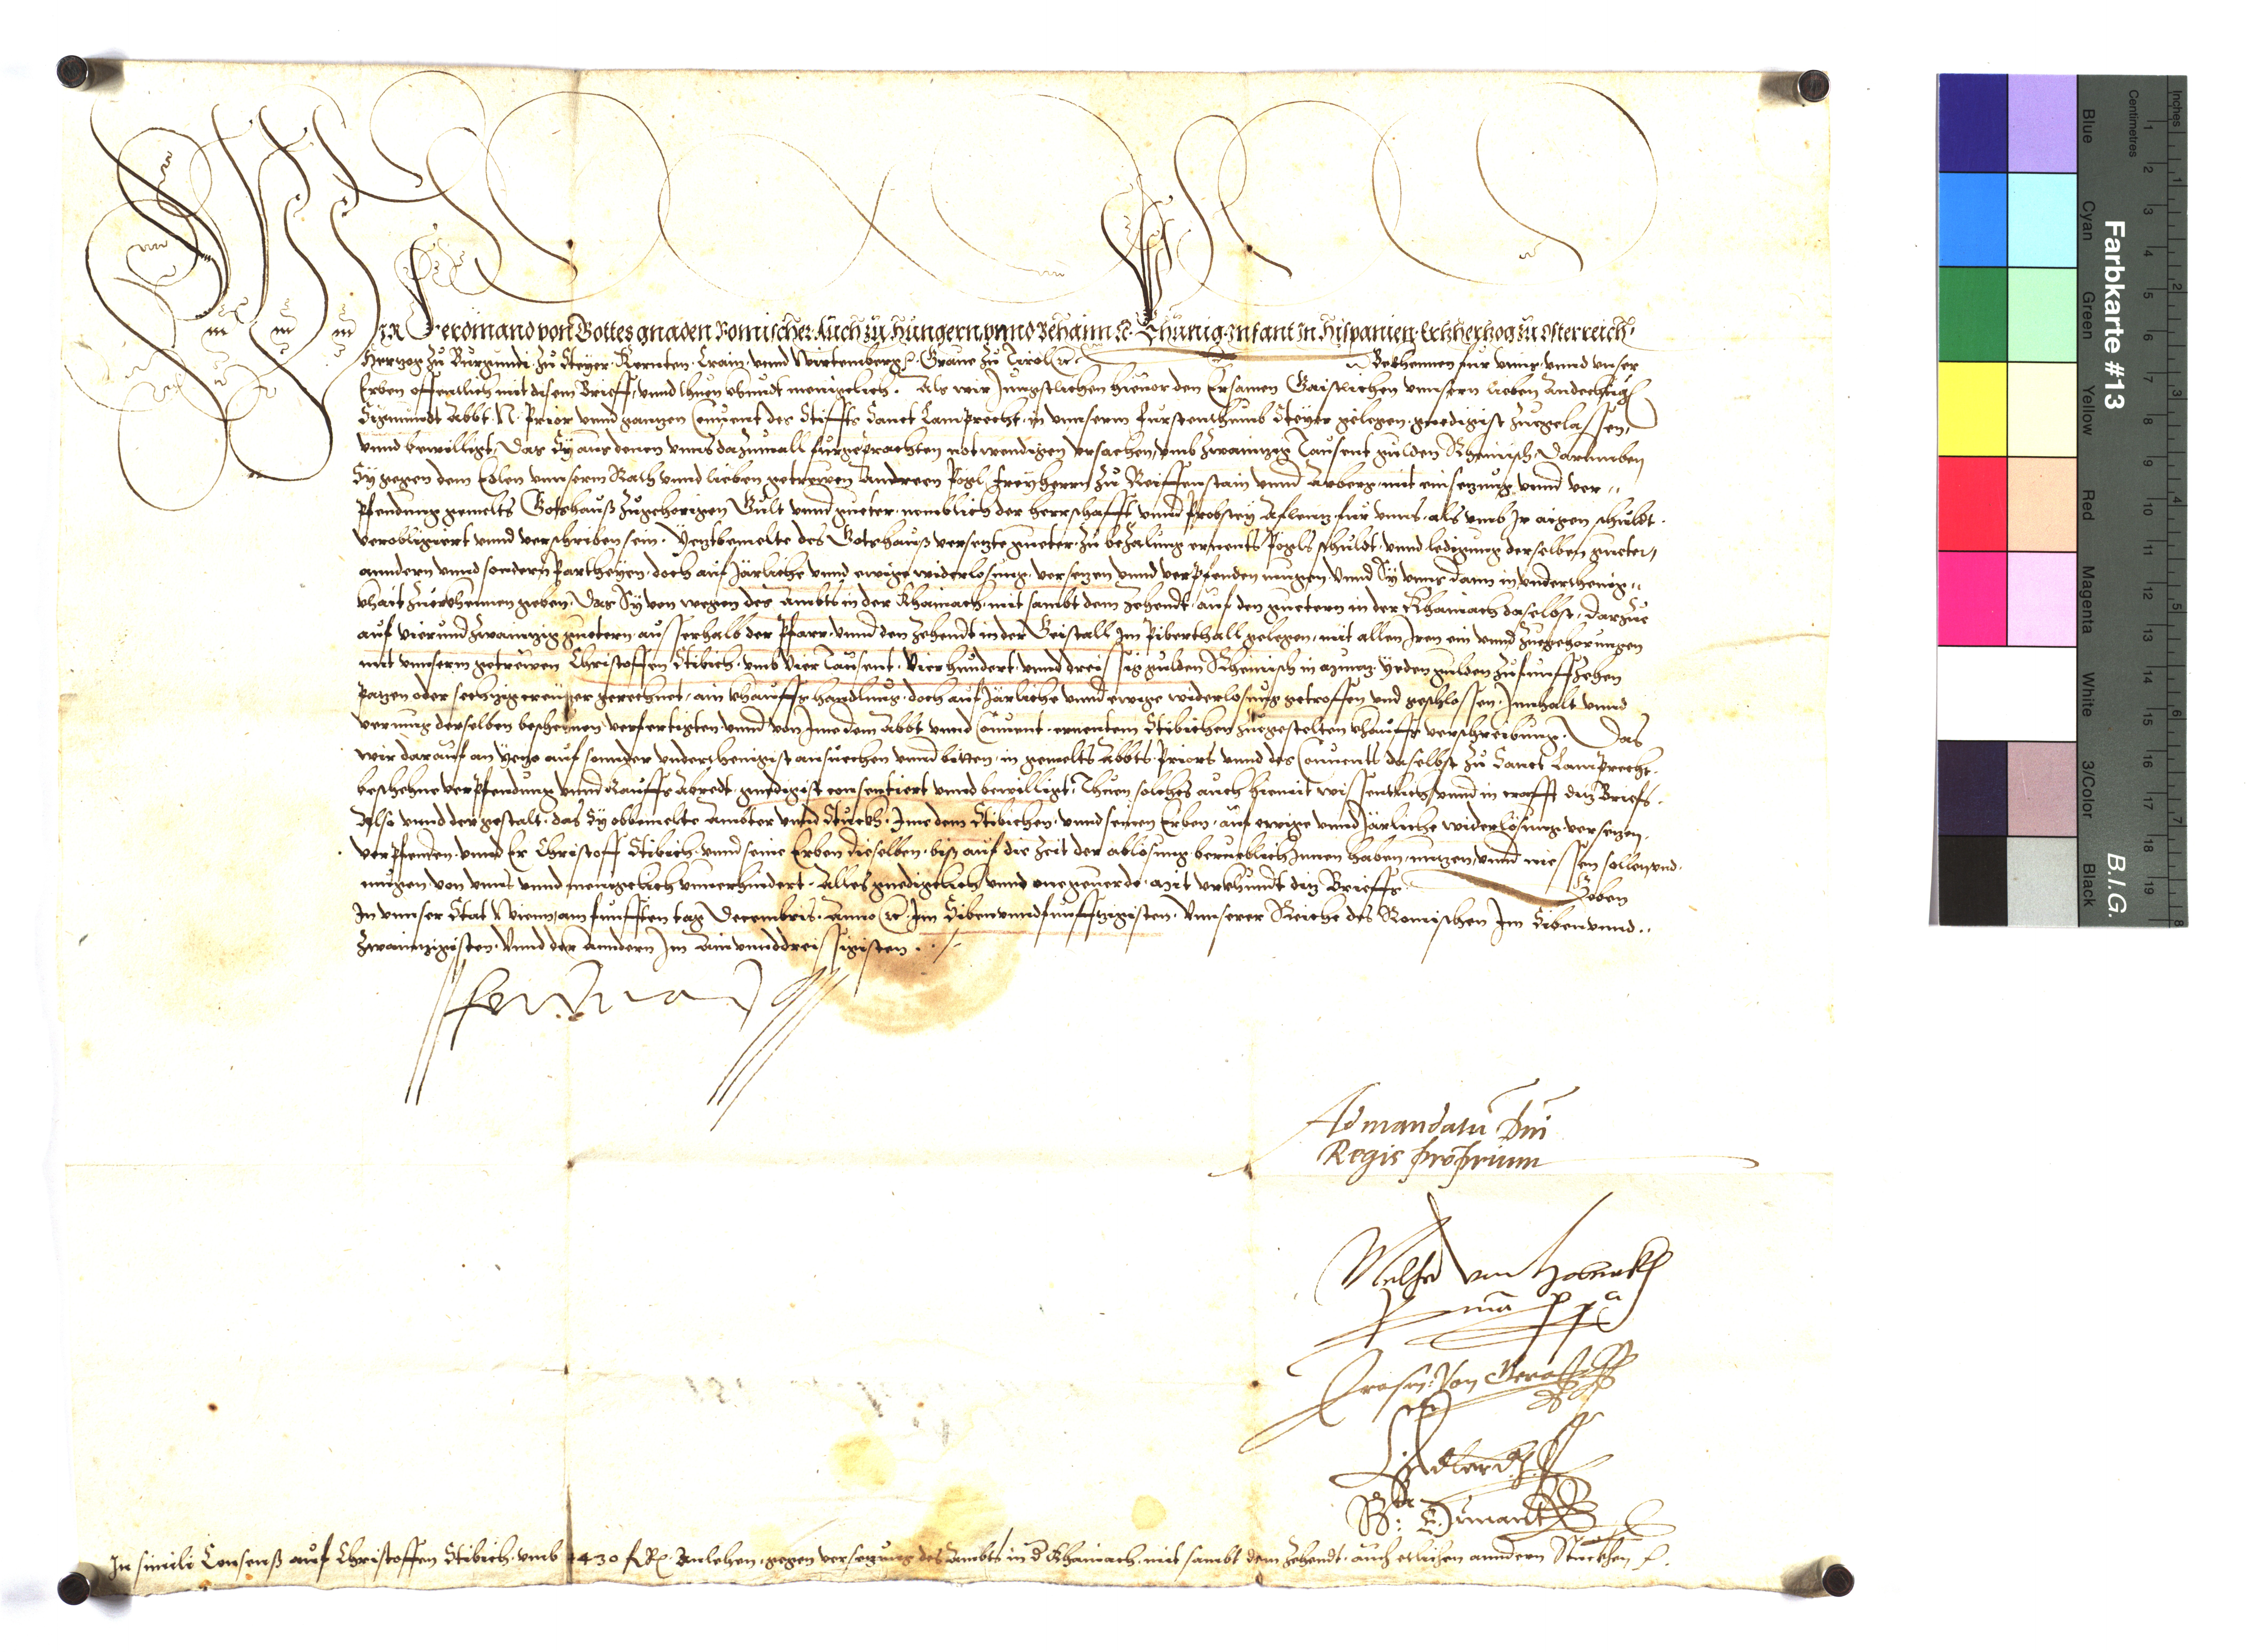 WIR Ferdinand von Gottes gnaden Romischer Auch zu Hungern vnnd Behaim ꝛc. Khünig. Infant in Hispanien. Ertzhertzog zu Osterreich.
Hertzog zu Burgundi. zu Steyer. Kernten. Crain. vnnd Wirtemberg ꝛc. Graue zu Tirol ꝛc. Bekhennen fur vnns vnnd vnser
Erben offentlich mit disem Brieff, vnnd thuen khundt menigclich. Als wir Jungstlichen hieuor den Ersamen Gaistlichen vnnsern lieben Andechtigen
Sigmundt Abbt. N. Prior vnnd gantzen Conuent des Stiffts Sanct Lamprecht, in vnnserm Furstenthumb Steyer gelegen, gnedigist zuegelassen,
vnnd bewilligt, Das Sy aus denen vnns dazumall furgeprachten notwendigen vrsachen, vmb zwaintzig Tausent gulden Rheinisch, Darumben
Sy gegen dem Edlen vnnserm Rath vnnd lieben getrewen Andreen Pögl Freyherrn zu Reiffenstain vnnd Arberg, mit einsetzung vnnd ver„
pfendung gemelts Gotshauß zugehorigen Gult vnnd gueter, nemblich der herrschafft vnnd Probstey Aflentz fur vnns, als vmb Ir aigen schuldt.
verobligiert vnnd verschriben sein. Yetztbemelte des Gotshauß versetzte gueter, zu bezalung ernents Pögls schuldt, vnnd ledigung derselben gueter,
anndern vnnd sondern Partheyen, doch auf Järliche vnnd ewige widerlosung, versetzen vnnd verpfenden mugen. Vnnd Sy vnns dann in vnderthenig„
khait zuerkhennen geben, Das Sy von wegen des Ambts in der Khainach, mit sambt dem Zehendt, auf den guetern in der Khainach daselbst, Darzue
auf vierundzwaintzig guetern, ausserhalb der Pfarr, vnnd den Zehendt in der Geistall Im Piberthall gelegen, mit allen Iren ein vnnd zuegehorungen
mit vnnserm getrewen Christoffen Stibich, vmb Vier Tausent. Vierhundert, vnnd dreissig gulden Rheinisch in muntz, Yeden gulden zu funffzehen
patzen oder sechtzig creutzer gerechnet, ain khauffs handlung, doch auf Järliche vnnd ewige widerlosung getroffen vnd geschlossen, Innhalt vnnd
vermug derselben beschehnen verfertigten, vnnd von Ime dem Abbt vnnd Conuent, ernentem Stibichen zuegestelten khauffs verschreibung. Das
wir darauf an Yetzo auf sonnder vnderthenigist ansuechen vnnd bitten, in gemelts Abbts, Priors vnnd des Conuents daselbst zu Sanct Lamprecht.
beschehne verpfendung vnnd Kauffs Abredt, gnedigist consentiert vnnd bewilligt. Thuen solches auch hiemit wissentlich, vnnd in crafft ditz Briefs.
Also vnnd der gestalt, das Sy obbemelte Ambter vnnd Stuckh, Ime dem Stibichen, vnnd seinen Erben, auf ewige vnnd Järliche widerlösung, versetzen.
verpfenden, vnnd Er Christoff Stibich, vnnd seine Erben dieselben, biß auf die Zeit der ablösung berueblich Innen haben, nutzen, vnnd niessen sollen vnd
mugen, von vnns vnnd menigclich vnuerhindert. Alles gnedigclich vnnd onegeuerde. Mit vrkhundt ditz Brieffs. Geben
In vnnser Stat Wienn, am funfften tag Decembris. Anno ꝛc. Im Sibenvnndfunfftzigisten. Vnnserer Reiche des Romischen Im Sibenvnnd„
zwaintzigisten. Vnnd der Anndern Im Ainvnnddreissigisten.
Ferdinand
Ad mandatū Dni
Regis proprium
von Hobmekh
mā ppa
In simili Consenß auf Christoffen Stibich, vmb 4430 fl Rh. Anlehen, gegen versetzung des Ambts in d Khainach, mit sambt dem Zehendt, auch etlichen anndern Stuckhen ꝛc.
Farbkarte #13
B.I.G.
Inches
1 2 3 4 5 6 7 8
Centimetres
1 2 3 4 5 6 7 8 9 10 11 12 13 14 15 16 17 18 19
Blue
Cyan
Green
Yellow
Red
Magenta
White
3/Color
Black